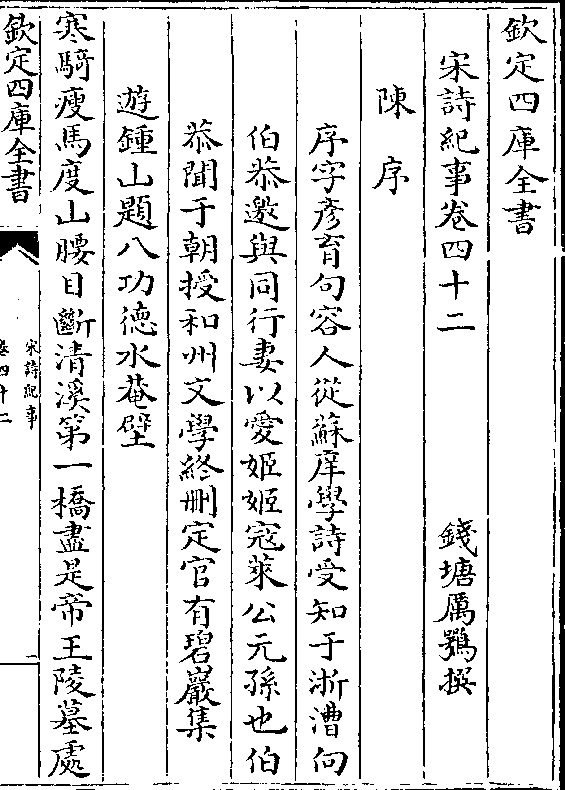 欽定四庫全書
宋詩紀事卷四十二
錢塘厲鶚撰
陳序
序字彥育句容人從蘇庠學詩受知于浙漕向
伯恭邀與同行妻以愛姬姬寇萊公元孫也伯
恭聞于朝授和州文學終刪定官有碧巖集
遊鍾山題八功德水菴壁
寒騎瘦馬度山腰目斷清溪第一橋盡是帝王陵墓處
欽定四庫全書
宋詩紀事
卷四十二
一